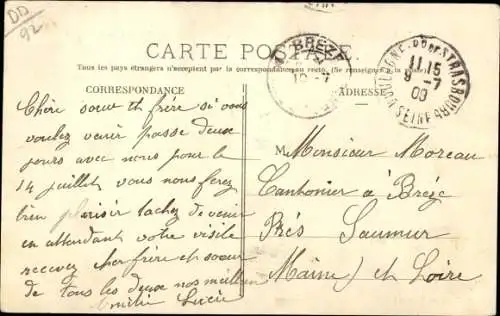 DD
92
CARTE POSTALE
Tous les pays étrangers n'acceptent pas la correspondance au recto. (Se renseigner à la
CORRESPONDANCE
ADRESSE
BRÉZÉ
10-7
BOULOGNE-RD DE STRASBOURG
11 15
9-7
09
SEINE
Chère sœur et frère si vous
voulez venir passe deux
jours avec nous pour le
14 juillet vous nous ferez
bien plaisir tachez de venir
en attendant votre visite
recevez cher frère et soeur
de tous les deux nos meilleur
Emilie Lucie
M Monsieur Moreau
Cantonier à Brézé
Près Saumur
Maine et Loire